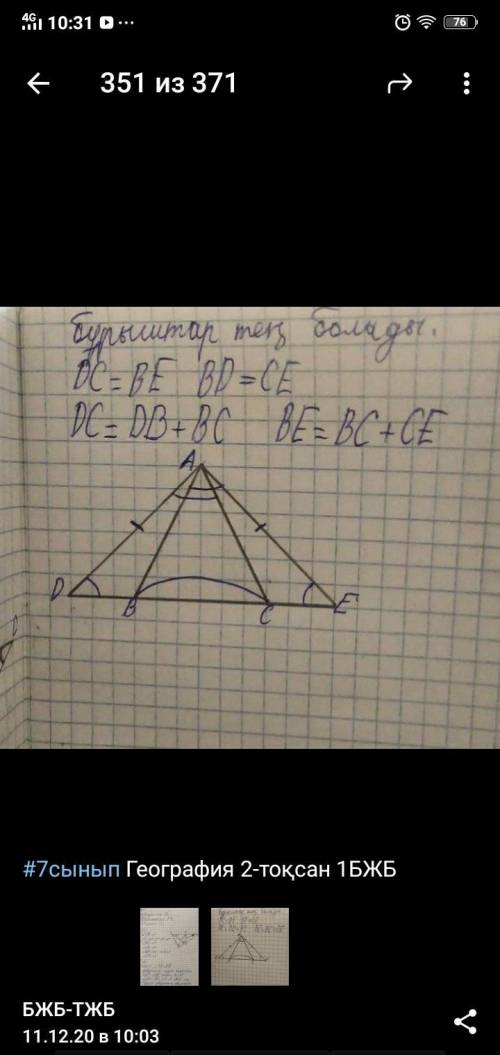 4G 10:31 ...
76
351 из 371
бұрыштар тең болады.
DC = BE BD = CE
DC = DB + BC BE = BC + CE
A
D B C E
#7сынып География 2-тоқсан 1БЖБ
БЖБ-ТЖБ
11.12.20 в 10:03